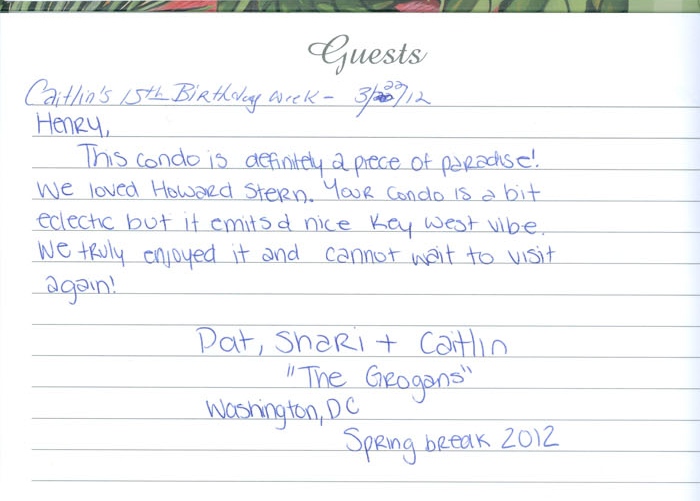 Guests
Caitlin's 15th Birthday Week - 3/22/12
Henry,
This condo is definitely a piece of paradise!
We loved Howard Stern. Your condo is a bit
eclectic but it emits a nice Key West vibe.
We truly enjoyed it and cannot wait to visit
again!
Pat, Shari + Caitlin
"The Grogans"
Washington, DC
Spring break 2012